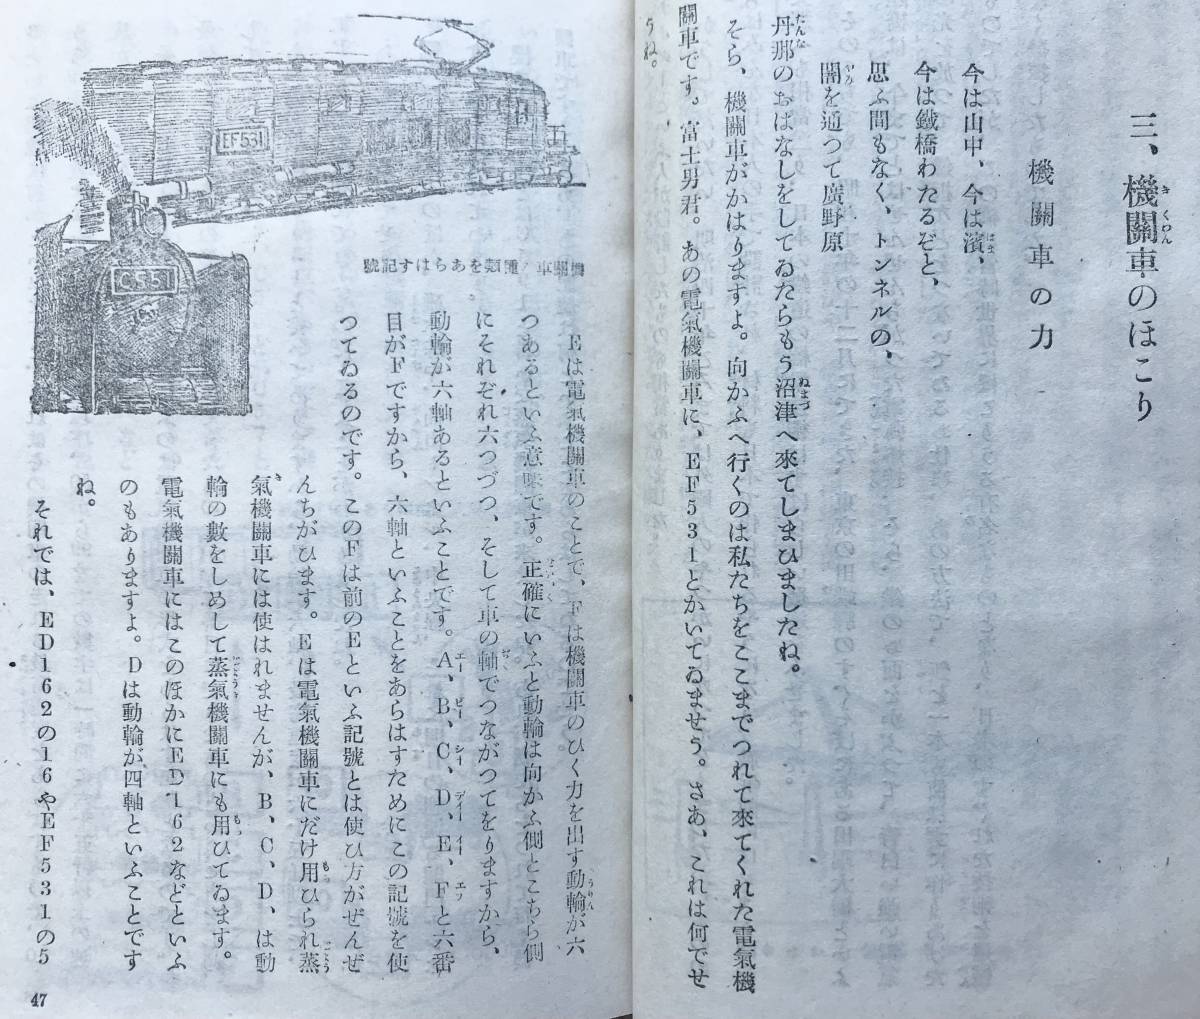 三、機關車のほこり
機關車の力
今は山中、今は濱、
今は鐵橋わたるぞと、
思ふ間もなく、トンネルの、
闇を通つて廣野原
丹那のおはなしをしてゐたらもう沼津へ來てしまひましたね。
そら、機關車がかはりますよ。向かふへ行くのは私たちをここまでつれて來てくれた電氣機
關車です。富士男君。あの電氣機關車に、EF531とかいてゐませう。さあ、これは何でせ
うね。
EF531
C551
機關車ノ種類をあらはす記號
Eは電氣機關車のことで、Fは機關車のひく力を出す動輪が六
つあるといふ意味です。正確にいふと動輪は向かふ側とこちら側
にそれぞれ六つづつ、そして車の軸でつながつてをりますから、
動輪が六軸あるといふことです。A、B、C、D、E、Fと六番
目がFですから、六軸といふことをあらはすためにこの記號を使
つてゐるのです。このFは前のEといふ記號とは使ひ方がぜんぜ
んちがひます。Eは電氣機關車にだけ用ひられ蒸
氣機關車には使はれませんが、B、C、D、は動
輪の數をしめして蒸氣機關車にも用ひてゐます。
電氣機關車にはこのほかにED162などといふ
のもありますよ。Dは動輪が四軸といふことです
ね。
それでは、ED162の16やEF531の5
47